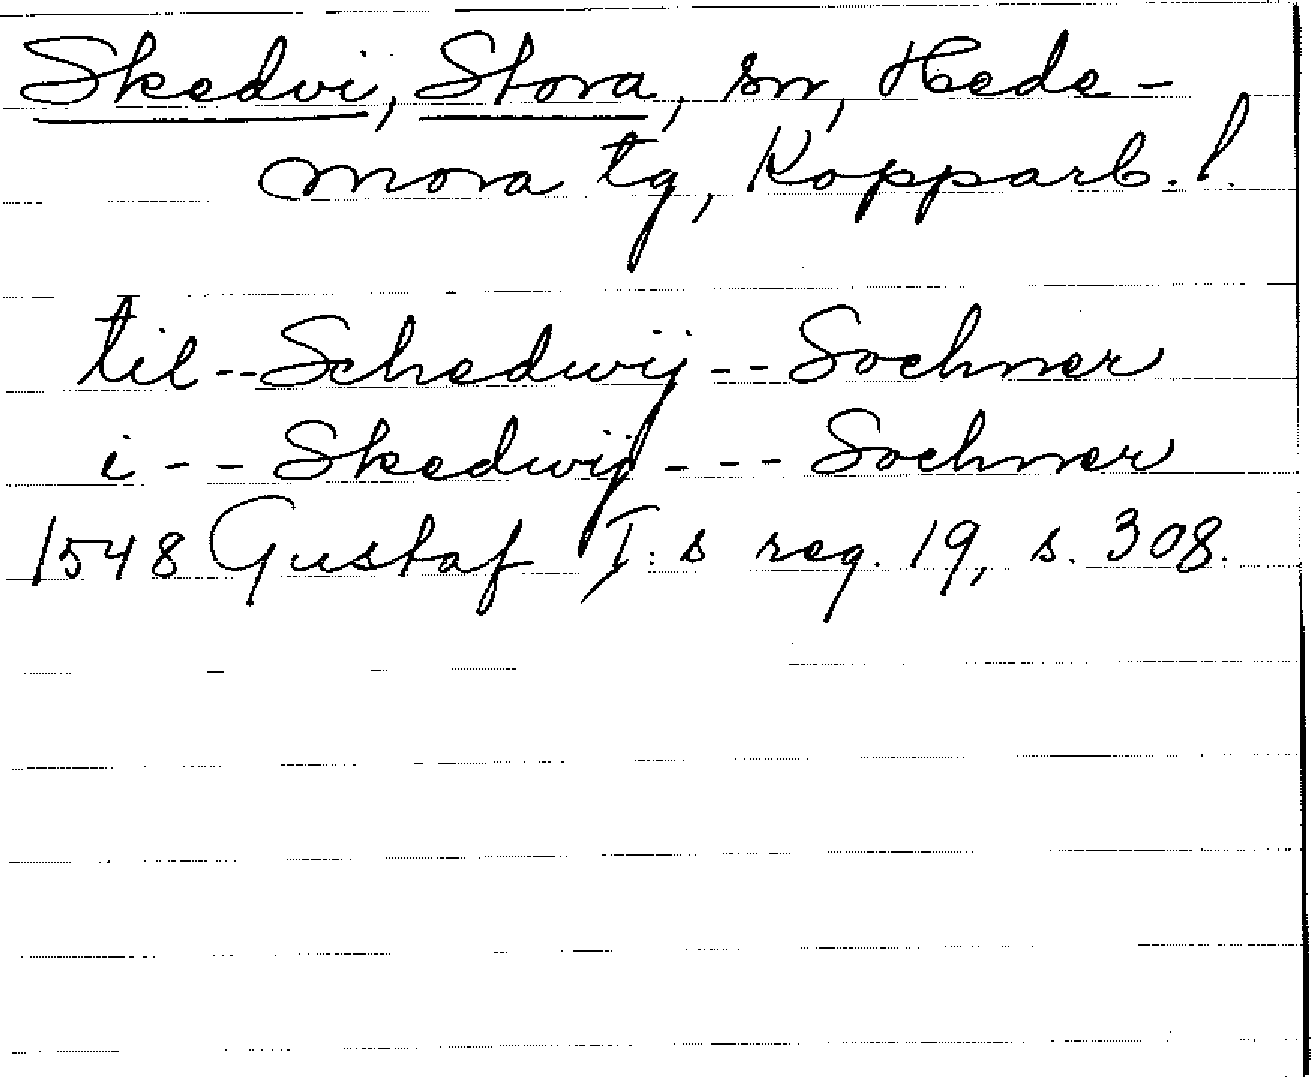 Skedvi, Stora, sn, Hede-
mora tg, Kopparb. l.
til -- Schedwij -- Sochner
i - - Skedwij - - - Sochner
1548 Gustaf I:s reg. 19, s. 308.